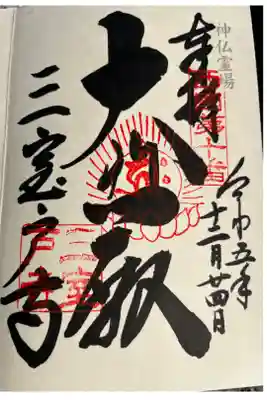 神仏霊場
奉拝
西国第十番
令和五年
十二月廿四日
大悲殿
三室戸寺